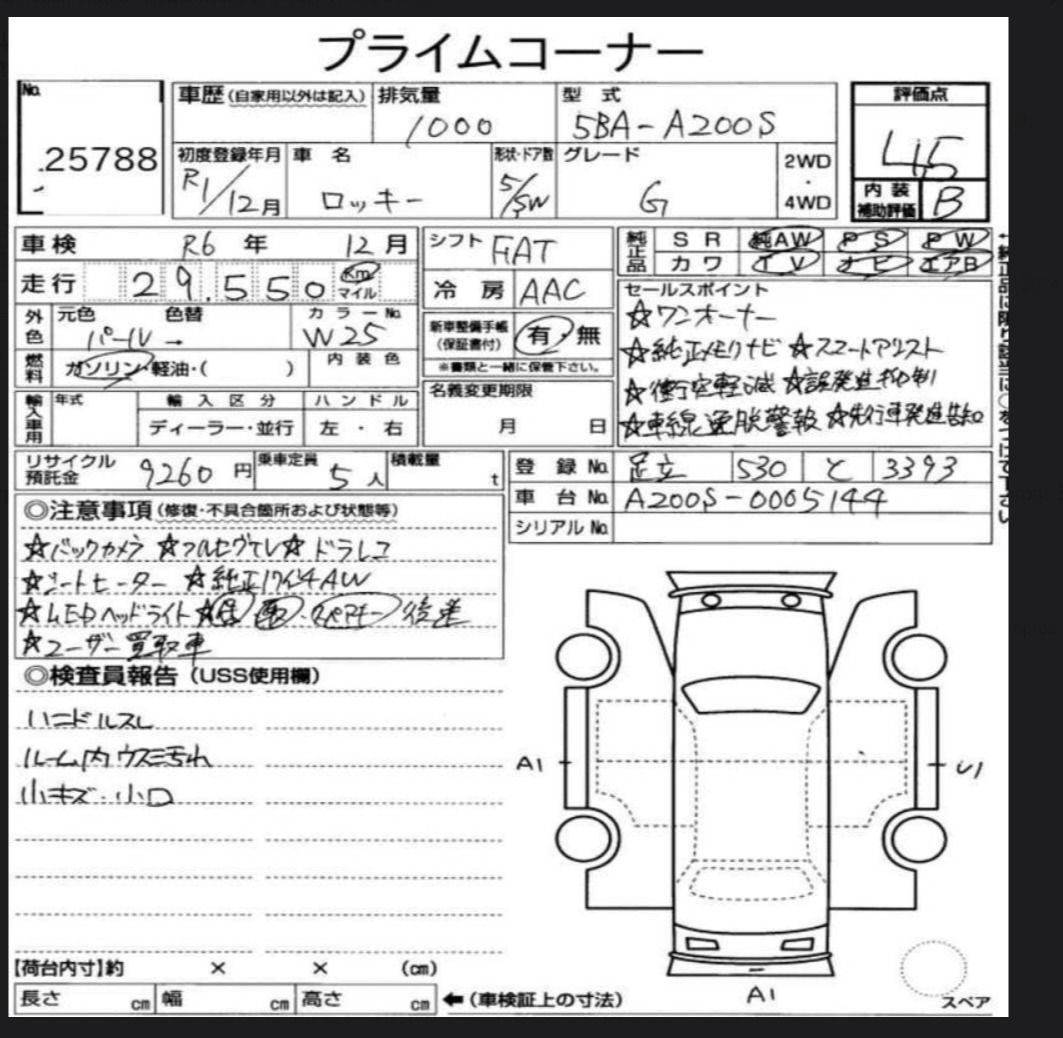 プライムコーナー
No. 25788
車歴(自家用以外は記入)
排気量 1000
型式 5BA-A200S
評価点 4.5
初度登録年月 R1/12月
車名 ロッキー
形状・ドア数 5/SW
グレード G
2WD・4WD
内装補助評価 B
車検 R6年 12月
走行 29.550 Km マイル
外色 元色 パール → 色替
カラーNo. W25
燃料 ガソリン・軽油・( )
内装色
輸入車用 年式 輸入区分 ハンドル
ディーラー・並行 左・右
シフト FAT
冷房 AAC
新車整備手帳(保証書付) 有・無
※書類と一緒に保管下さい。
名義変更期限
月 日
純正品 SR 純AW PS PW
カワ TV ナビ エアB
セールスポイント
☆ワンオーナー
☆純正メモリナビ ☆スマートアシスト
☆衝突軽減 ☆誤発進抑制
☆車線逸脱警報 ☆先行車発進告知
リサイクル預託金 9260円
乗車定員 5人
積載量 t
登録No. 足立 530 と 3393
車台No. A200S-0005144
シリアルNo.
◎注意事項(修復・不具合箇所および状態等)
☆バックカメラ ☆フルセグTV ☆ドラレコ
☆シートヒーター ☆純正17インチAW
☆LEDヘッドライト ☆ スペアキー 後送
☆ユーザー買取車
◎検査員報告(USS使用欄)
ハンドルスレ
ルーム内ウス汚れ
小キズ・小凹
A1
U1
A1
【荷台内寸】約 × × (cm)
長さ cm 幅 cm 高さ cm ←(車検証上の寸法)
スペア